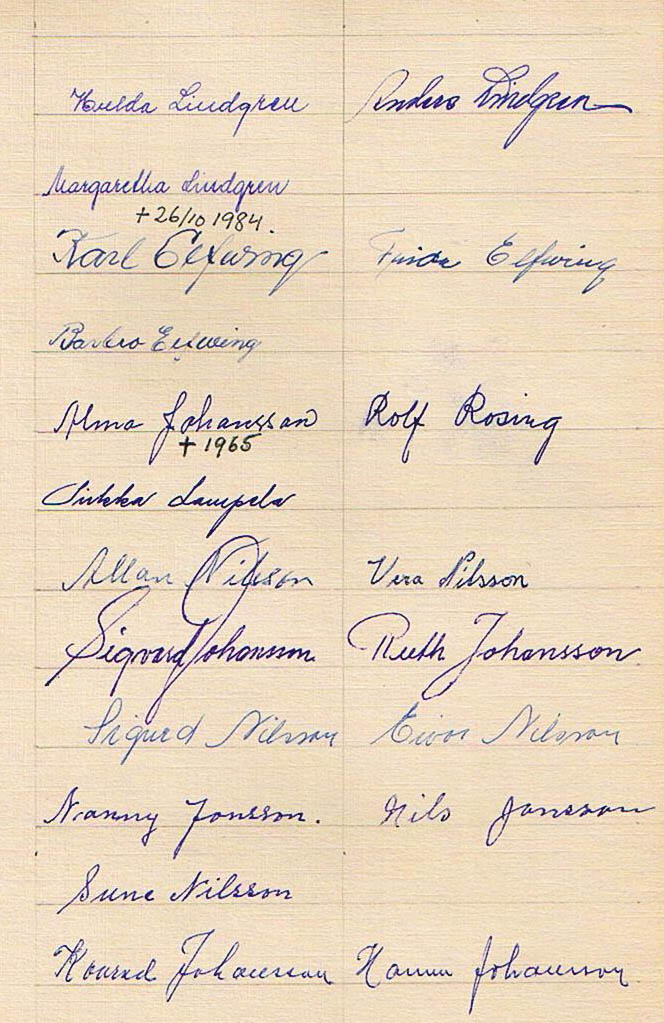 Hulda Lindgren Anders Lindgren
Margaretha Lindgren
+ 26/10 1984.
Karl Elfwing Frida Elfwing
Barbro Elfwing
Alma Johansson Rolf Rosing
+ 1965
Sirkka Lampela
Allan Nilsson Vera Nilsson
Sigvard Johansson. Ruth Johansson
Sigurd Nilsson Eivor Nilsson
Nanny Jonsson. Nils Jonsson
Sune Nilsson
Konrad Johansson Hanna Johansson